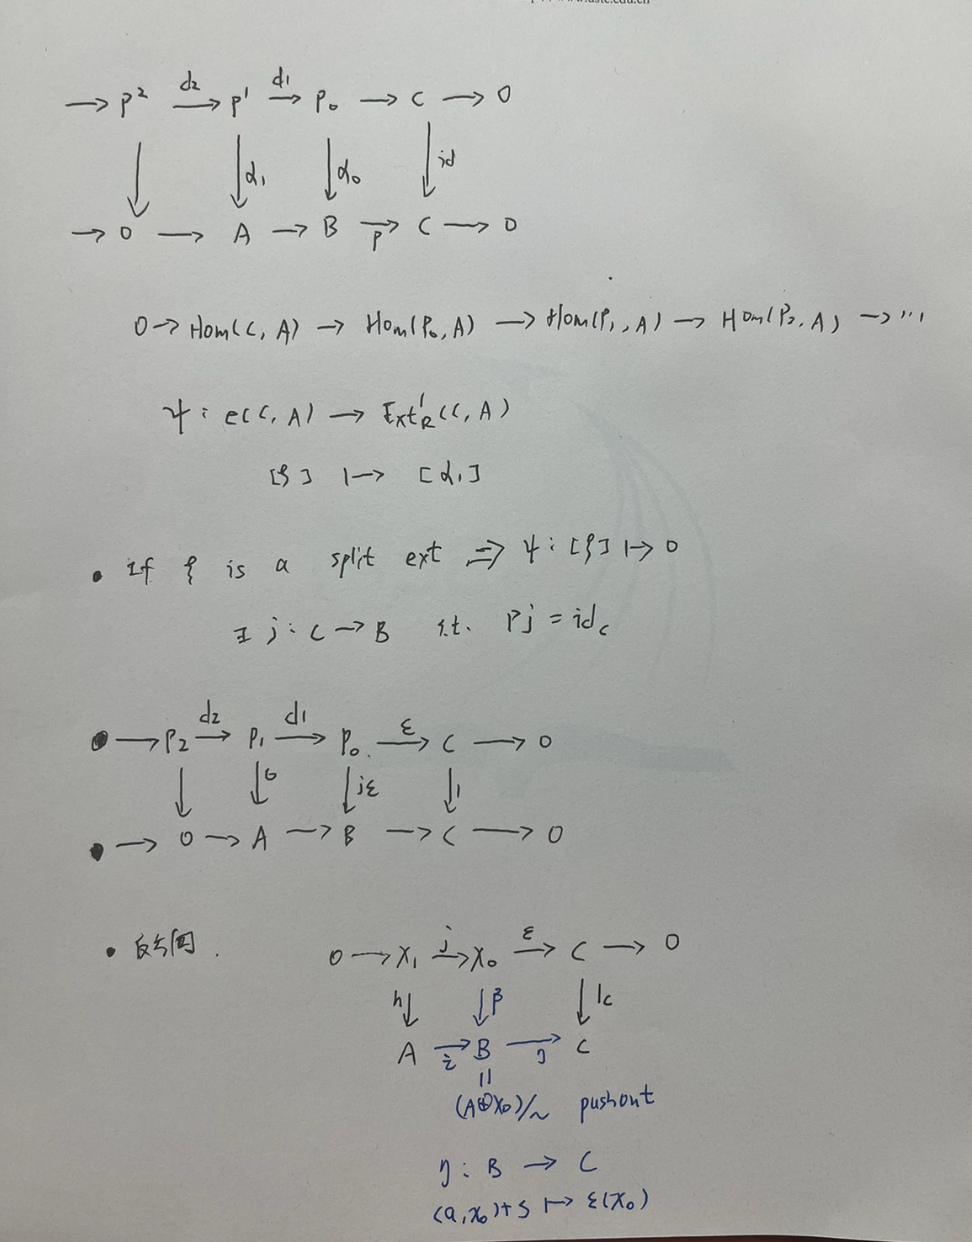 → P² →(d₂) P¹ →(d₁) P₀ → C → 0
↓ ↓α₁ ↓α₀ ↓id
→ 0 → A → B →(p) C → 0
0 → Hom(C, A) → Hom(P₀, A) → Hom(P₁, A) → Hom(P₂, A) → ···
ψ : e(C, A) → Ext¹_R(C, A)
[ξ] ↦ [α₁]
• If ξ is a split ext ⇒ ψ : [ξ] ↦ 0
∃ j : C → B s.t. Pj = id_C
→ P₂ →(d₂) P₁ →(d₁) P₀ →(ε) C → 0
↓ ↓0 ↓jε ↓1
→ 0 → A → B → C → 0
• 反方向.
0 → X₁ →(j) X₀ →(ε) C → 0
h↓ ↓β ↓1_C
A →(i) B →(η) C
||
(A⊕X₀)/~ pushout
η : B → C
(a, x₀)+S ↦ ε(x₀)